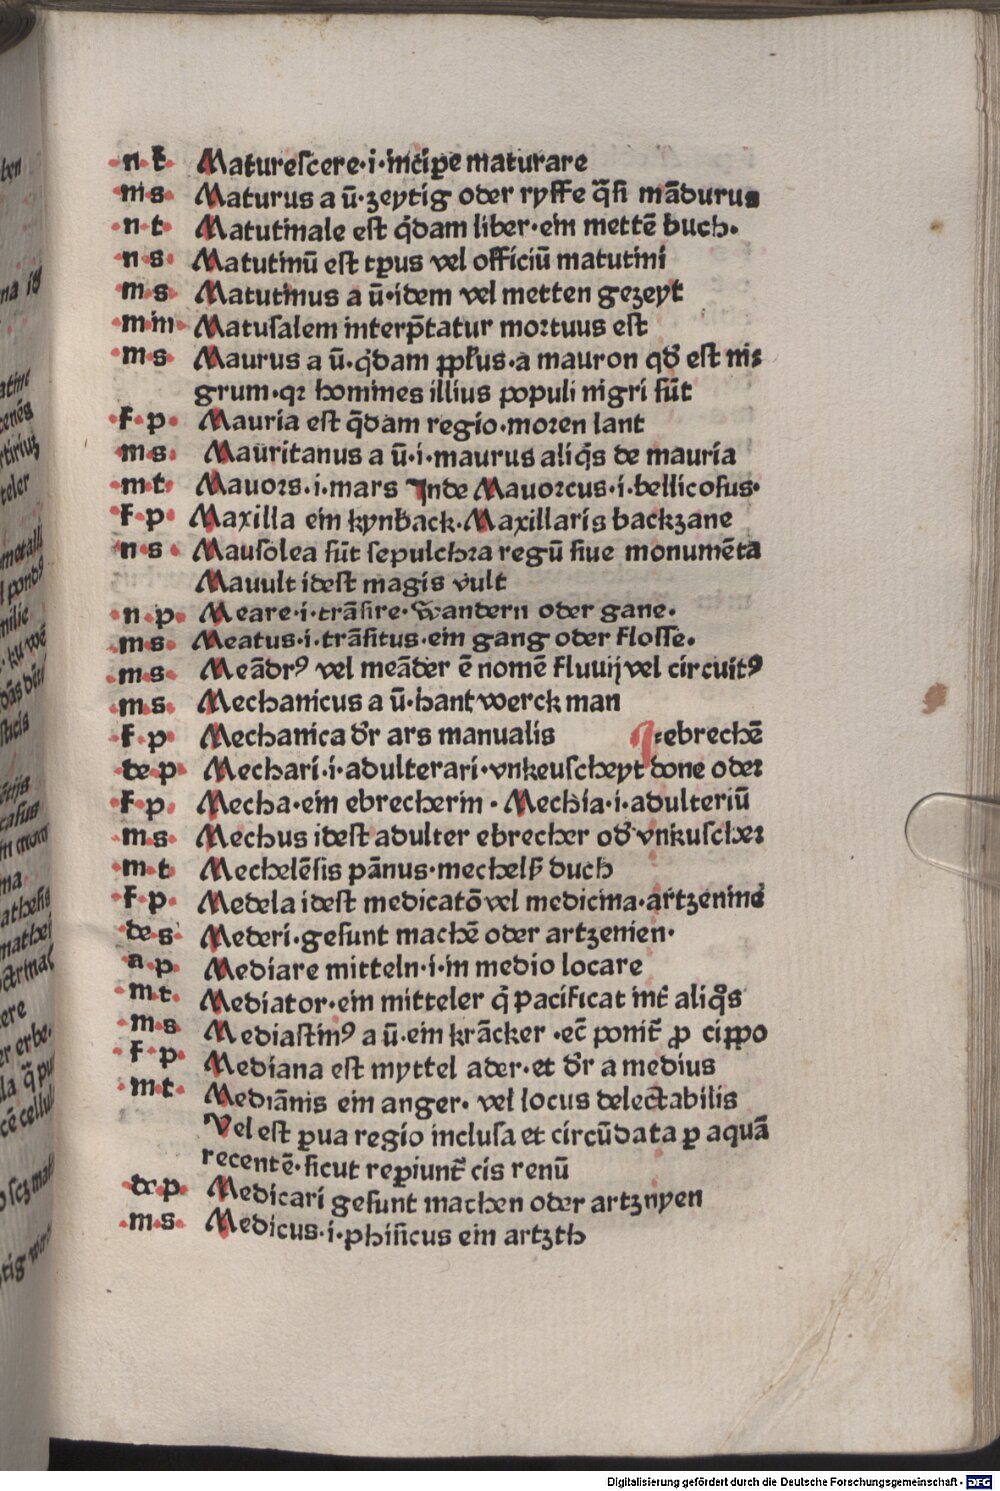 ·n·t̄· Matureſcere·i·incīpe maturare
·m·s· Maturus a ū·zeytig oder ryffe q̄ſi mādurus
·n·t· Matutinale eſt q̇dam liber·ein mettē buch·
·n·s· Matutinū eſt tp̄us vel officiū matutini
·m·s· Matutinus a ū·idem vel metten gezeyt
·m·m· Matuſalem interp̄tatur moꝛtuus eſt
·m·s· Maurus a ū·q̇dam pp̄lus·a mauron qd̕ eſt ni⸗
grum·qꝛ homines illius populi nigri ſūt
·f·p· Mauria eſt q̄dam regio·moꝛen lant
·m·s· Mauritanus a ū·i·maurus aliq̇s de mauria
·m·t· Mauoꝛs·i·mars Inde Mauoꝛcus·i·bellicoſus·
·f·p· Maxilla ein kynback·Maxillaris backzane
·n·s· Mauſolea ſūt ſepulchꝛa regū ſiue monumēta
Mauult ideſt magis vult
·n·p· Meare·i·trāſire·Wandern oder gane·
·m·s· Meatus·i·trāſitus·ein gang oder floſſe·
·m·s· Meādrꝰ vel meāder ē nomē fluuij vel circuitꝰ
·m·s· Mechanicus a ū·hantwerck man
·f·p· Mechanica dr̄ ars manualis ebrechē
·de·p· Mechari·i·adulterari·vnkeuſcheyt done odeꝛ
·f·p· Mecha·ein ebrecherin·Mechia·i·adulteriū
·m·s· Mechus ideſt adulter ebrecher od̕ vnkuſcheꝛ
·m·t· Mechelēſis pānus·mechelſ̕ duch
·f·p· Medela ideſt medicatō vel medicina·artzenine
·de·s· Mederi·geſunt machē oder artzenien·
·a·p· Mediare mitteln·i·in medio locare
·m·t· Mediator·ein mitteler q̇ pacificat int̄ aliq̊s
·m·s· Mediaſtinꝰ a ū·ein krācker·ec̄ ponit̄ ꝓ cippo
·f·p· Mediana eſt myttel ader·et dr̄ a medius
·m·t· Mediānis ein anger·vel locus delectabilis
Vel eſt ꝑua regio incluſa et circūdata ꝑ aquā
recentē·ſicut reꝑiunt̄ cis renū
·de·p· Medicari geſunt machen oder artznyen
·m·s· Medicus·i·phiſicus ein artzth
Digitalisierung gefördert durch die Deutsche Forschungsgemeinschaft - DFG